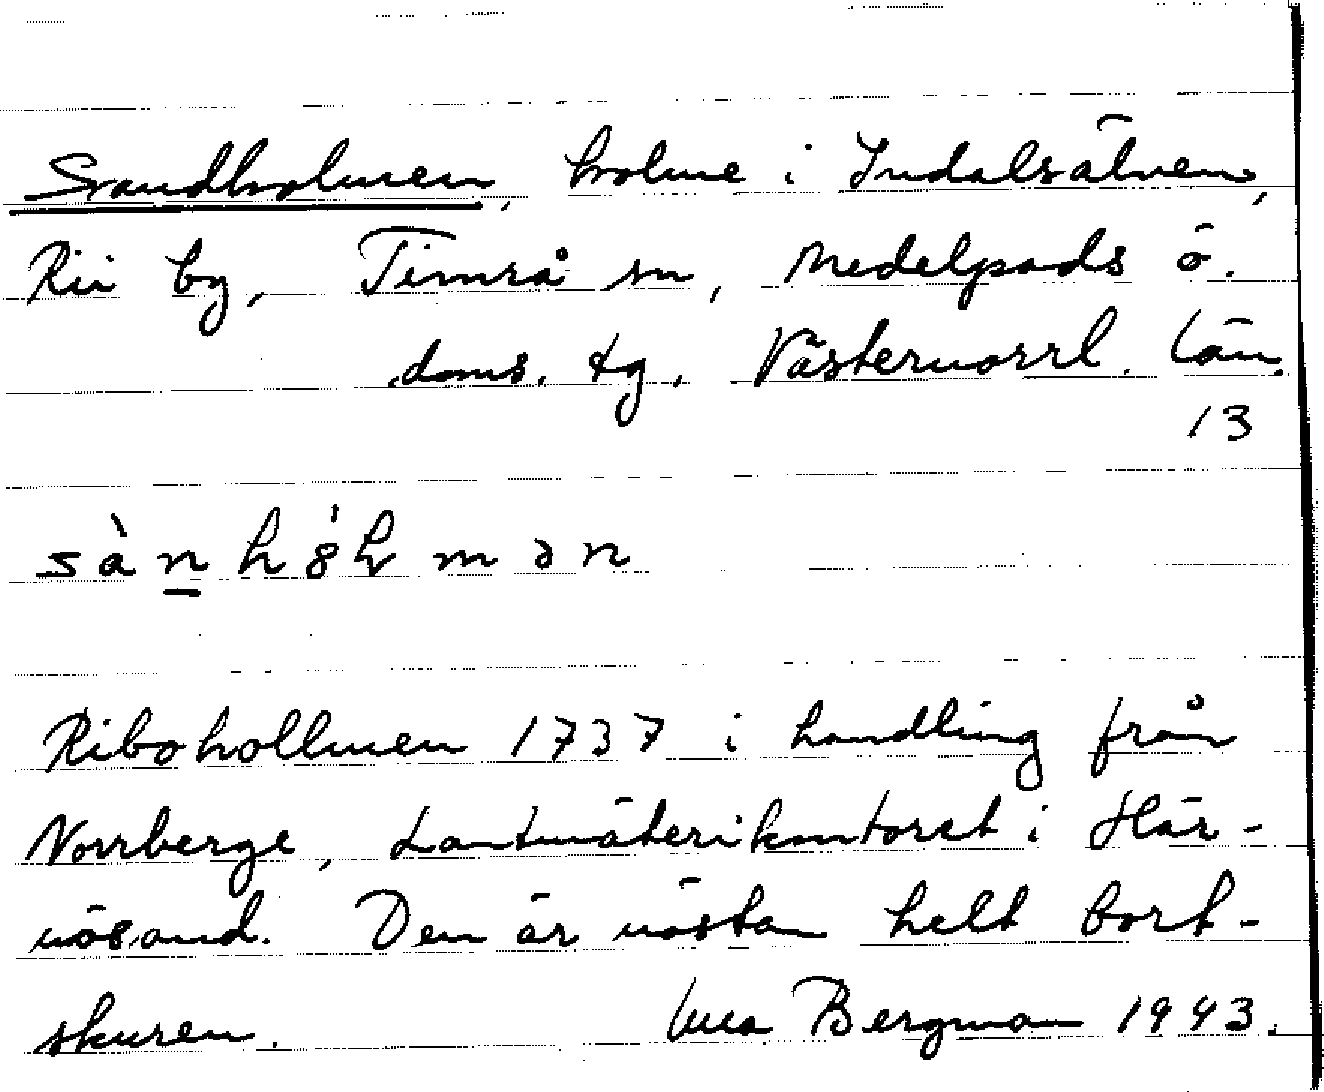 Sandholmen, holme i Indalsälven,
Rii by, Timrå sn, Medelpads ö.
doms. tg, Västernorrl. län.
13
Riboholmen 1737 i handling från
Norrberge, Lantmäterikontoret i Här-
nösand. Den är nästan helt bort-
skuren. Bergman 1943.